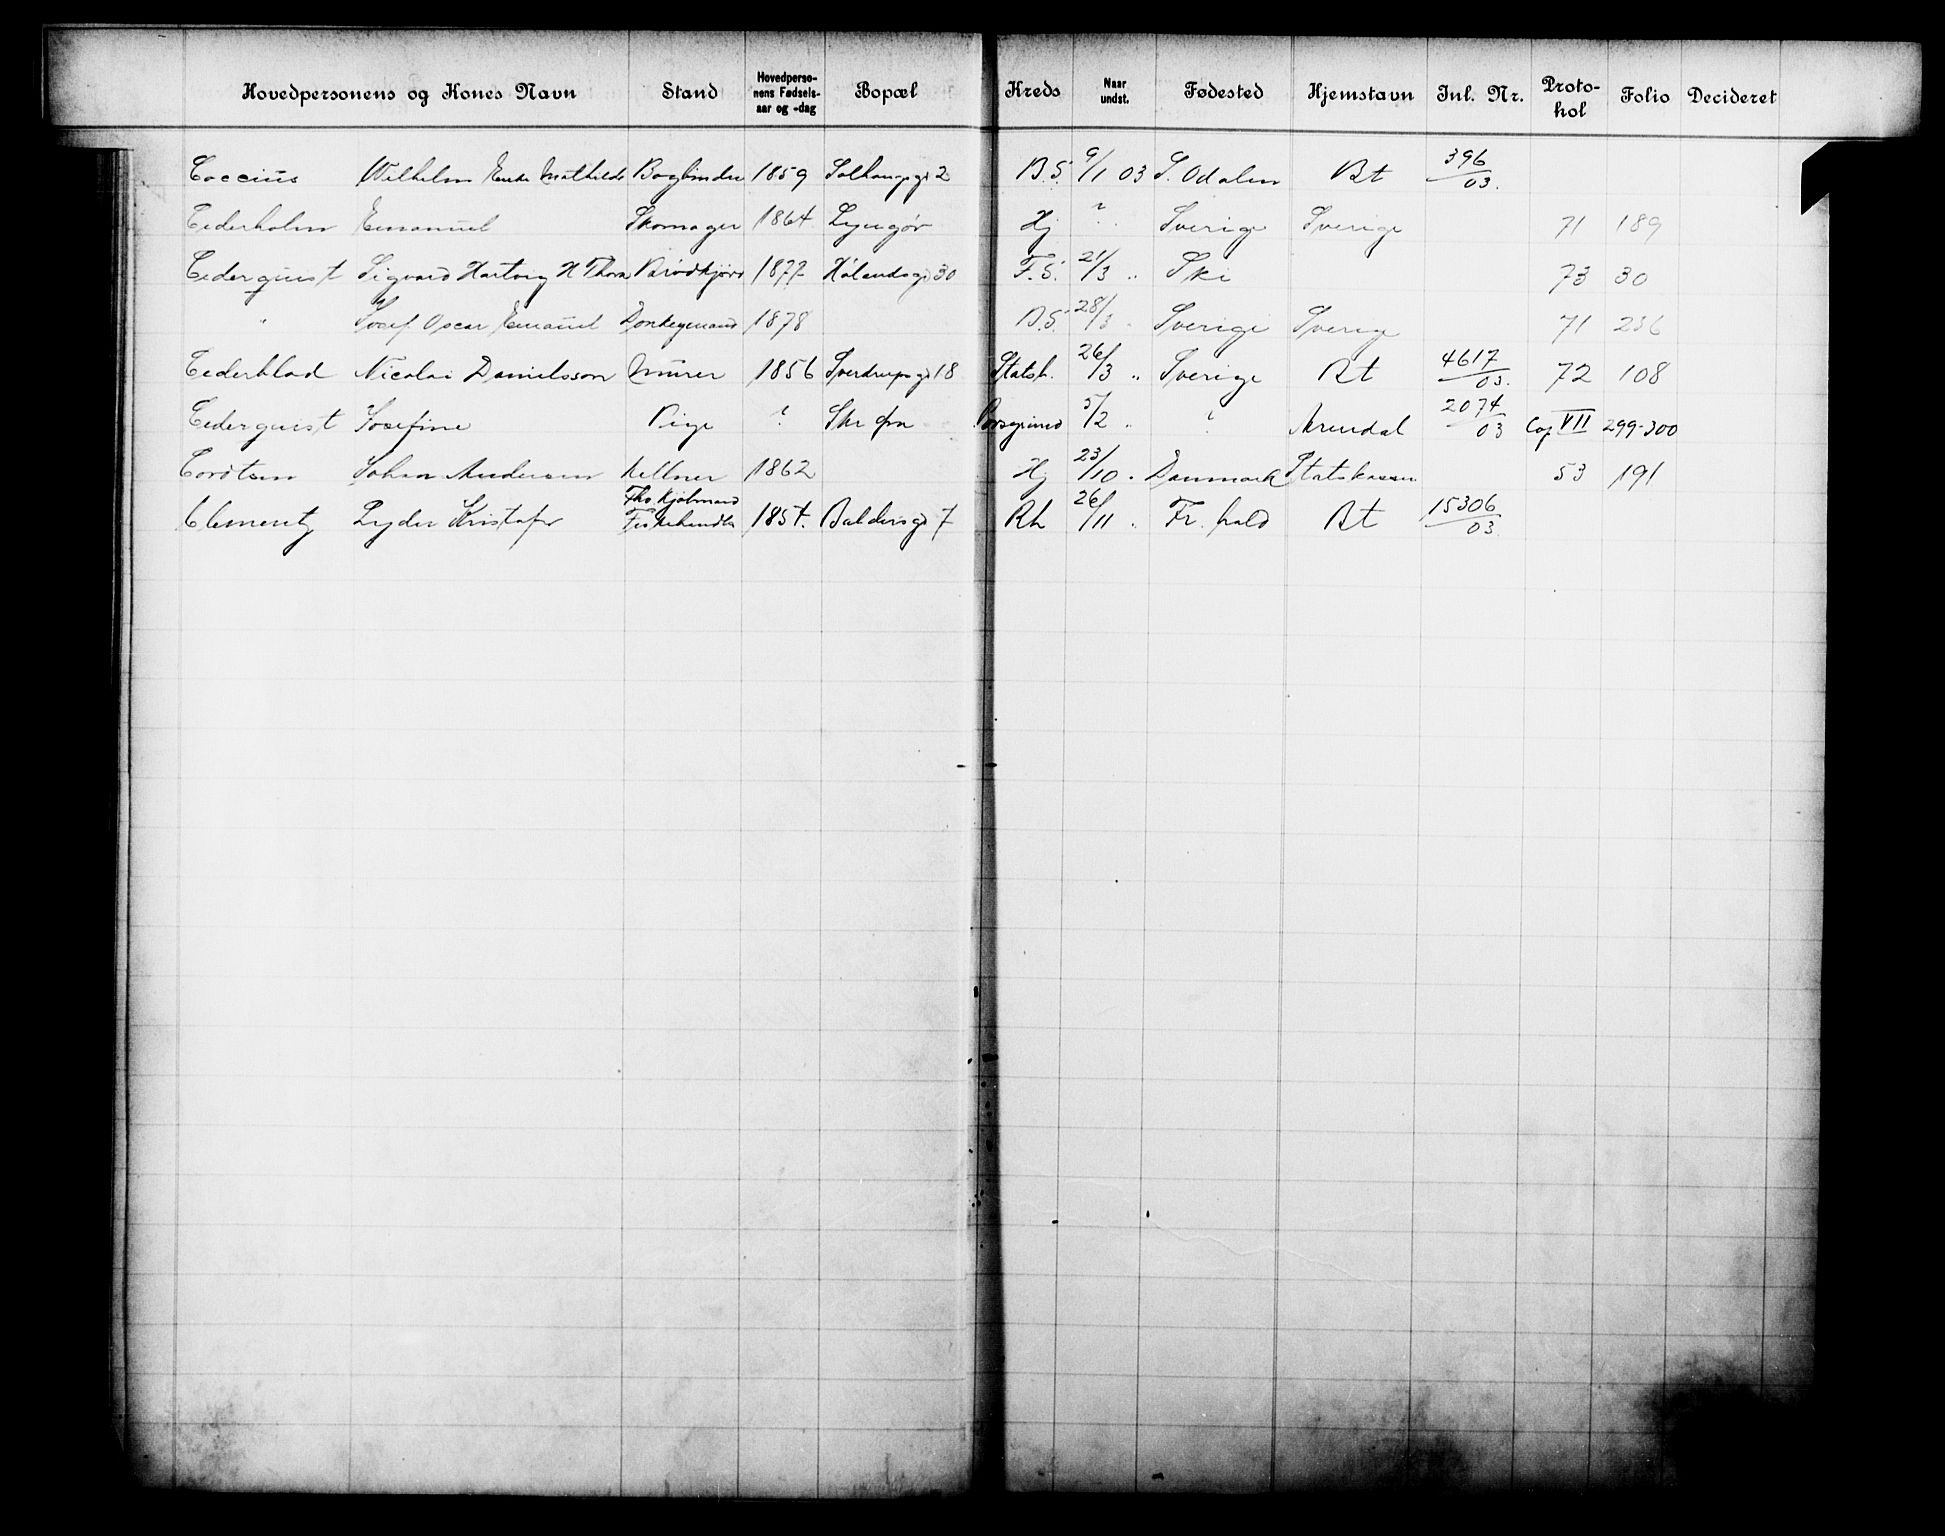 Hovedpersonens og Kones Navn Stand Hovedperso-nens Fødsels-aar og -dag Bopæl Kreds Naar undst. Fødested Hjemstavn Inl. Nr. Proto-kol Folio Decideret
Coccius Wilhelm Enke Mathilde Bogbinder 1859 Solhaugsgd 2 B.S. 9/1 03 S. Odalen Bt 396/03.
Cederholm Emanuel Skomager 1864 Lyngør Hj ? Sverige Sverige 71 189
Cederquist Sigvard Hartvig H Thora Brødkjører 1877 Hølandsgd 30 F.S. 21/3 " Ski 73 30
" Josef Oscar Emanuel Donkeymand 1878 B.S. 28/3 " Sverige Sverige 71 236
Cederblad Nicolai Danielsson Murer 1856 Sverdrupsgd 18 Statsb. 26/3 " Sverige Bt 4617/03. 72 108
Cederquist Josefine Pige ? Skr fra Porsgrund 5/2 " ? Arendal 2074/03 Cop VII 299-300
Cordtsen Johan Andersen Kellner 1862 Hj 23/10 " Danmark Statskassen 53 191
Clementz Lyder Kristofer Fiskehandler 1857. Baldersgd 7 Rh 26/11 " Fr.hald Bt 15306/03.